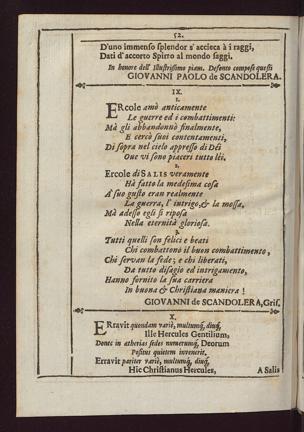 52.
D'uno immenso splendor s'accieca à i raggi,
Dati d'accorto Spirto al mondo saggi.
In honore dell' Illustrissimo piam. Defonto compose questi
GIOVANNI PAOLO de SCANDOLERA.
IX.
1.
ERcole amò anticamente
Le guerre ed i combattimenti:
Mà gli abbandonnò finalmente,
E cercò suoi contentamenti,
Di sopra nel cielo appresso di Dëi
Oue vi sono piaceri tutto lëi.
2.
Ercole di SALIS veramente
Hà fatto la medesima cosa
A' suo gusto eran realmente
La guerra, l' intrigo, & la mossa,
Mà adesso egli si riposa
Nella eternità gloriosa.
3.
Tutti quelli son felici e beati
Chi combattonò il buon combattimento,
Chi servan la fede; e chi liberati,
Da tutto disagio ed intrigamento,
Hanno fornito la sua carriera
In buona & Christiana maniera!
GIOVANNI de SCANDOLERA, Gris.
X.
ERravit quondam variè, multumq́, diuq́,
Ille Hercules Gentilium,
Donec in ætherias sedes numerumq́, Deorum
Positus quietem invenerit.
Erravit pariter variè, multumq́, diuq́,
Hic Christianus Hercules,
A Salis